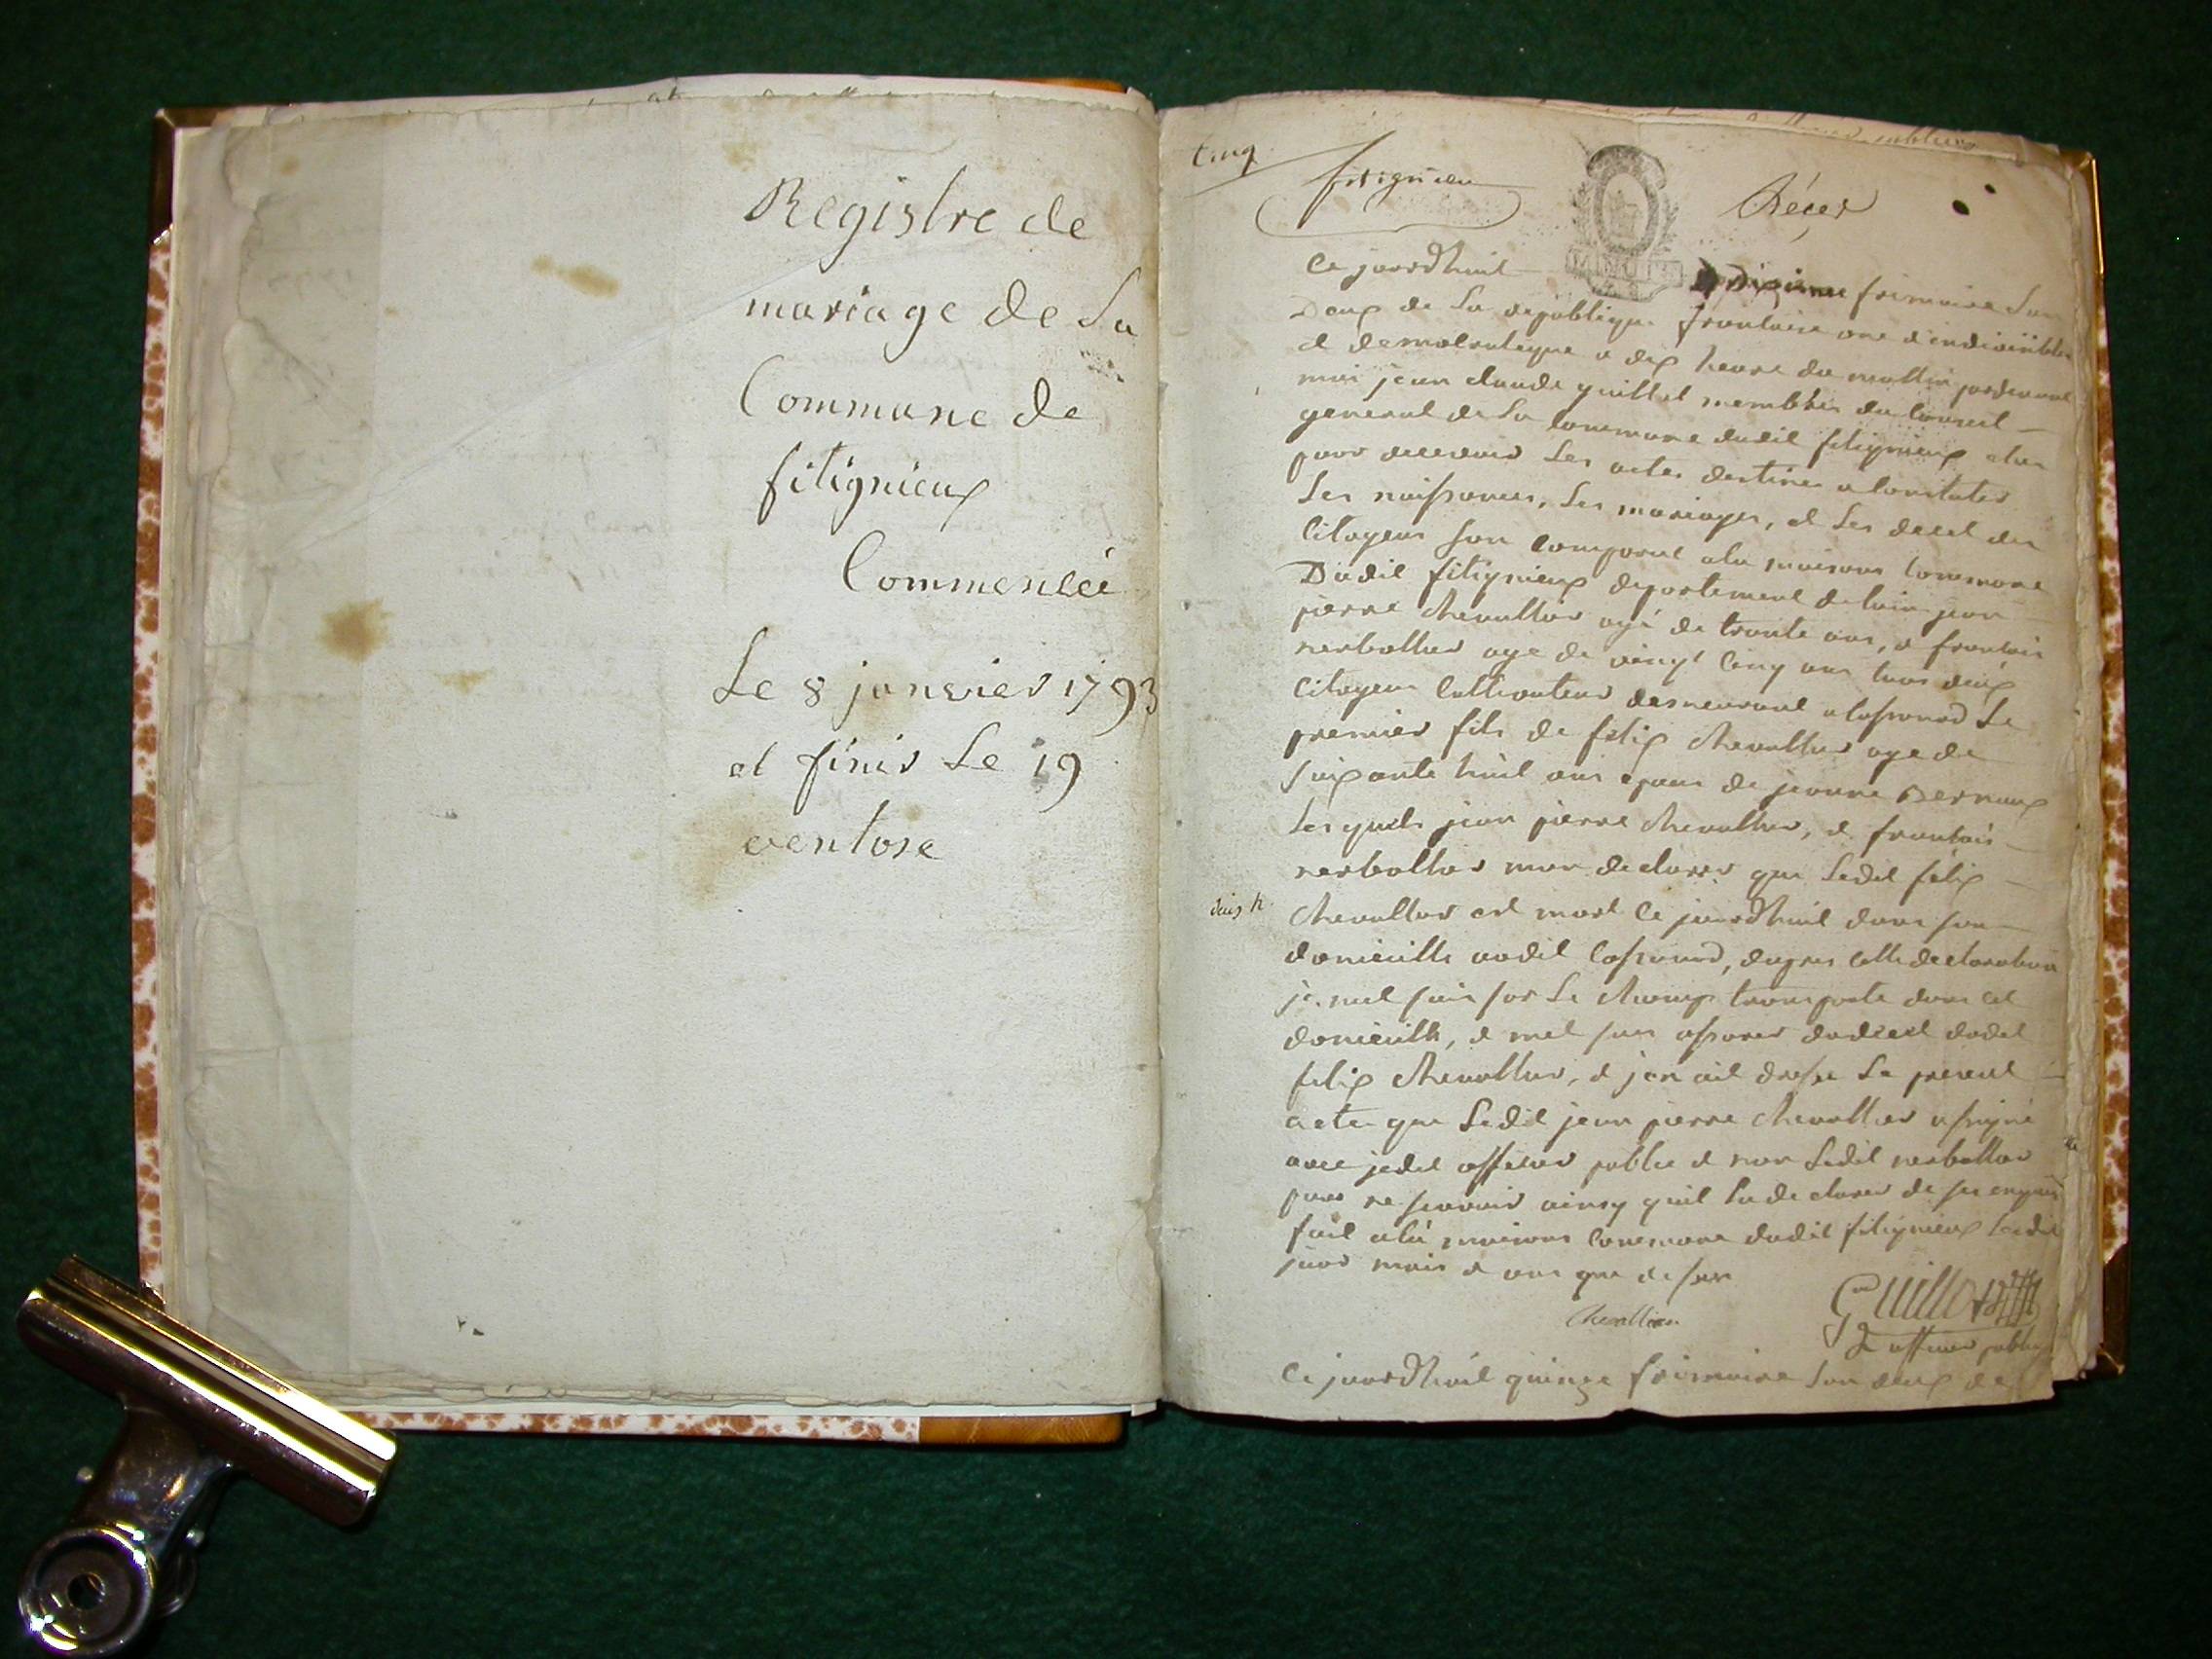 Registre de
mariage de La
Commune de
fitignieux
Commencéé
Le 8 janvier 1793
et finir Le 19
ventose
Cinq
fitignieu
Décet
Ce jourdhuit dixieme frimaire Lan
Deux de La republique francaise une d'indivisible
et democratique a dix heure du mattin pardevant
moi jean claude guillot membre du conseil
general de La commune dudit fitignieux elus
pour recevoir Les actes destines a constater
Les naissances, Les mariages, et Les decet des
Citoyens son comparut a la maisons commune
Dudit fitignieux departement de lain jean
pierre Chevallier agé de trante ans, et francois
nerbollier age de vingt cinq ans tous deux
Citoyens Cultivateur demeurant a lassonod Le
premier fils de felix Chevallier age de
soixante huit ans epous de jeanne Dernaux
Lesquels jean pierre Chevallier, et francois
nerbollier mon declarer que Ledit felix
Chevallier est mort Ce jourdhuit dans son
domicille audit , dapres cette declaration
je met suis sur Le champ transporte dans cet
domicille, et met suis assurer dudecet dudit
felix Chevallier, et jen ait dresse Le present
acte que Ledit jean pierre Chevallier a signé
avec jedit officier public et non Ledit nerbollier
pour ne scavoir ainsy quil la declarer de ses enquis
fait a la maisons commune dudit fitignieux Ledit
jour mois et ans que dessus
Chevallier
Guillot
officier public
Ce jourdhuit quinze frimaire Lan deux de